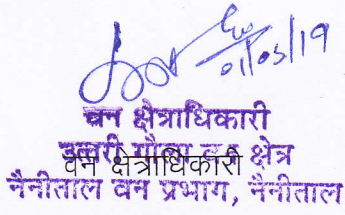 01/03/19
वन क्षेत्राधिकारी
उत्तरी गौला वन क्षेत्र
वन क्षेत्राधिकारी
नैनीताल वन प्रभाग, नैनीताल